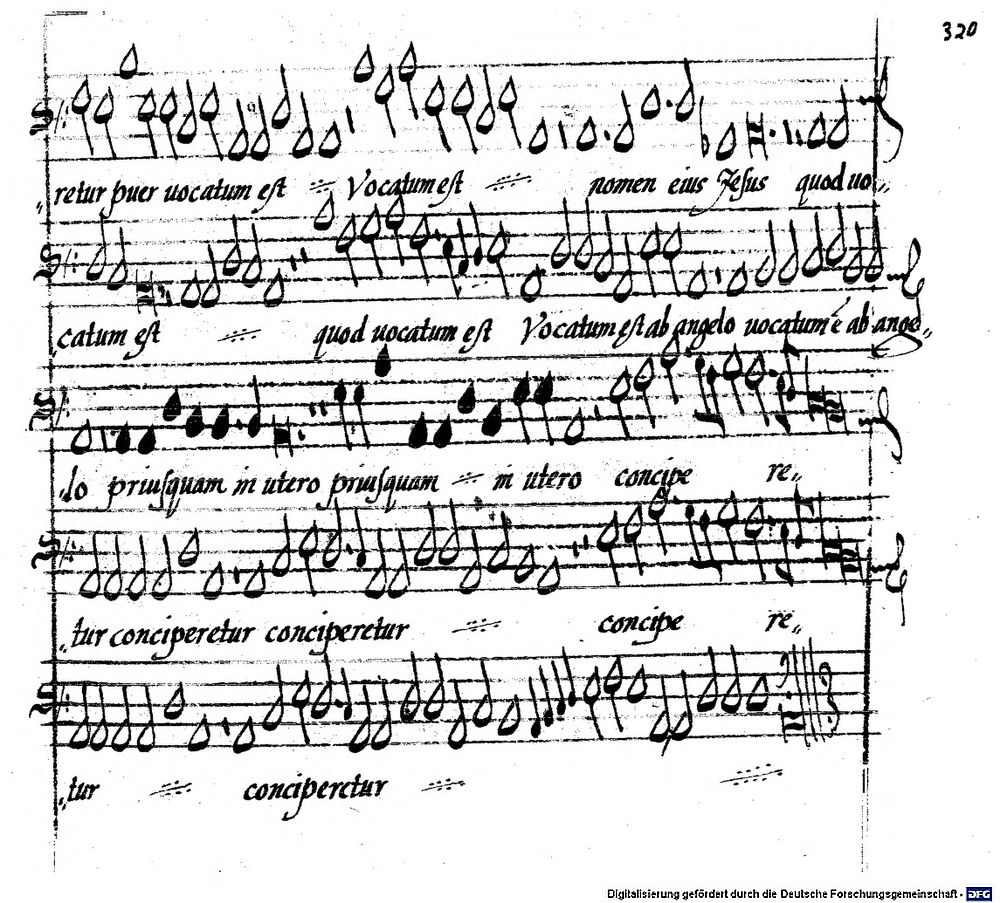 320
retur puer uocatum est Vocatum est nomen eius Jesus quod uo
catum est quod uocatum est Vocatum est ab angelo uocatum ē ab ange
lo priusquam in utero priusquam in utero concipe re
tur conciperetur conciperetur concipe re
tur conciperetur
Digitalisierung gefördert durch die Deutsche Forschungsgemeinschaft - DFG